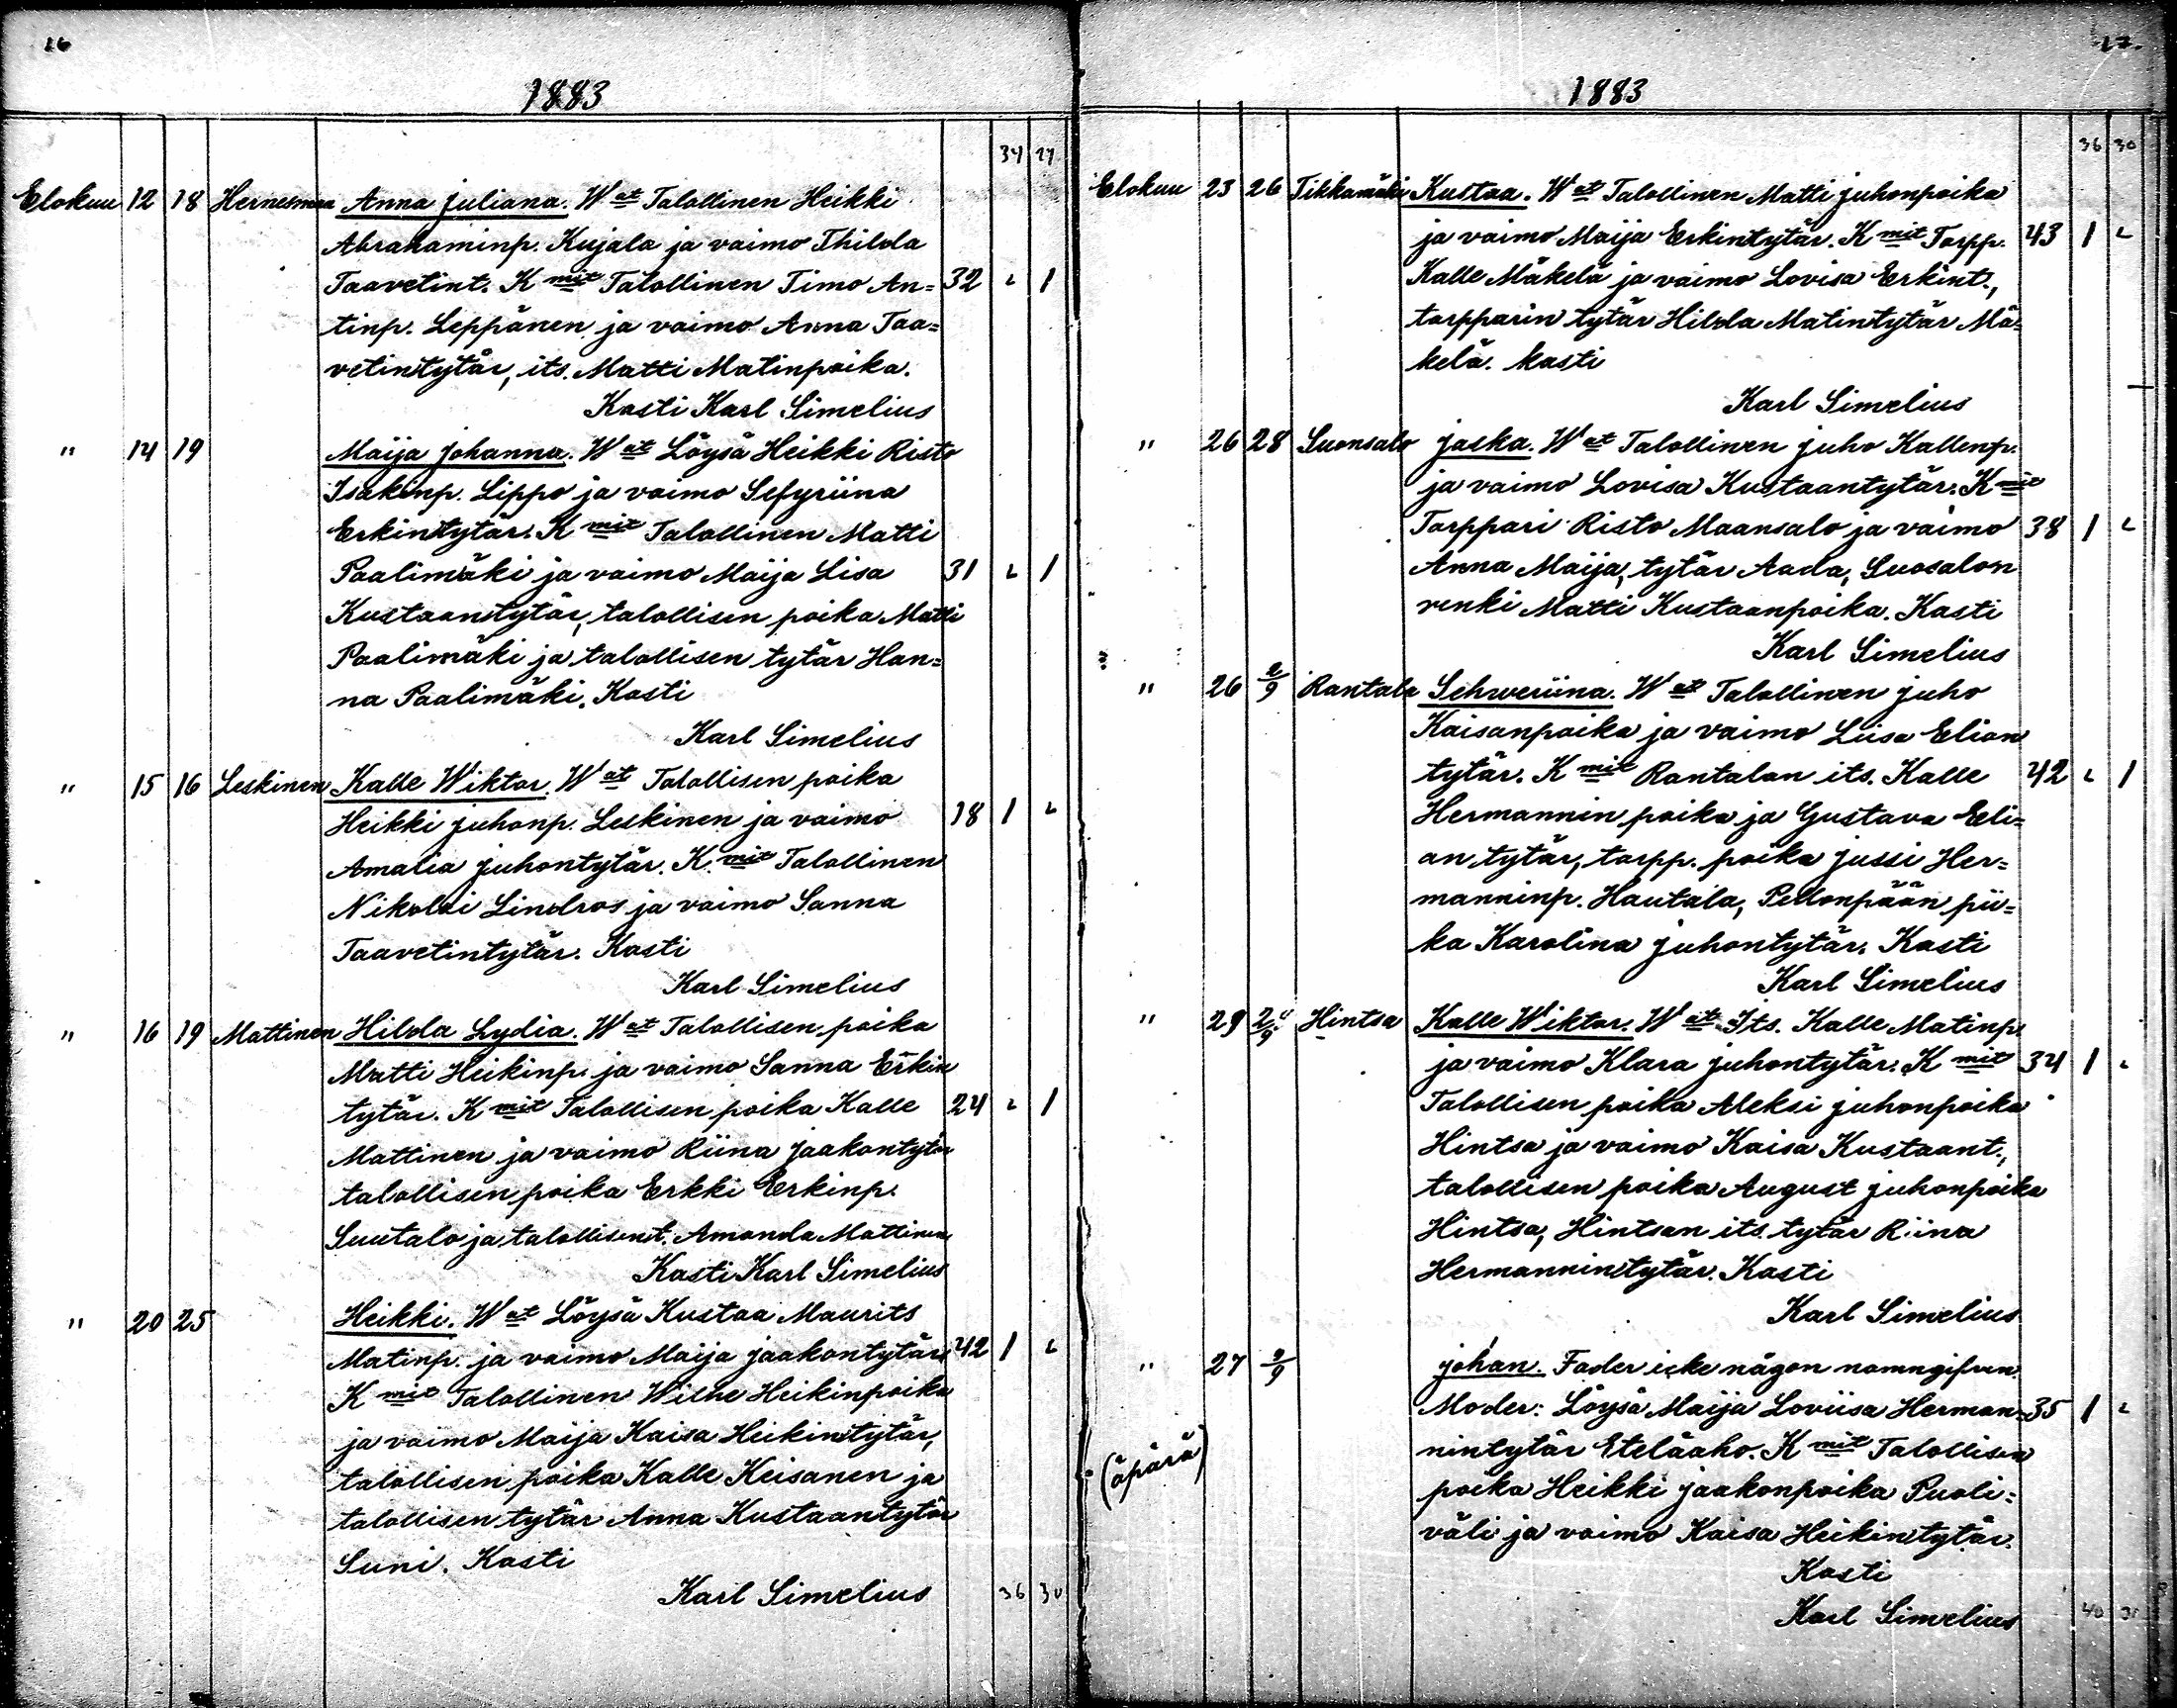 16
1883
34 27
Elokuu 12 18 Hernesmaa Anna Juliana. W at Talollinen Heikki
Abrahaminp. Kujala ja vaimo Thilda
Taavetint. K mit Talollinen Timo An= 32 " 1
tinp. Leppänen ja vaimo Anna Taa=
vetintytär, its. Matti Matinpoika.
Kasti Karl Simelius
" 14 19 Maija Johanna. W at Löysä Heikki Risto
Isakinp. Lippo ja vaimo Sefyriina
Erkintytär. K mit Talollinen Matti
Paalimäki ja vaimo Maija Lisa 31 " 1
Kustaantytär, talollisen poika Matti
Paalimäki ja talollisen tytär Han=
na Paalimäki. Kasti
Karl Simelius
" 15 16 Leskinen Kalle Wiktor. W at Talollisen poika
Heikki Juhonp. Leskinen ja vaimo 18 1 "
Amalia Juhontytär. K. mit Talollinen
Nikolai Lindros ja vaimo Sanna
Taavetintytär. Kasti
Karl Simelius
" 16 19 Mattinen Hilda Lydia. W at Talollisen poika
Matti Heikinp. ja vaimo Sanna Erkin
tytär. K mit Talollisen poika Kalle 24 " 1
Mattinen ja vaimo Riina Jaakontytär
talollisen poika Erkki Erkinp.
Suutalo ja talollisent. Amanda Mattinen
Kasti Karl Simelius
" 20 25 Heikki. W at Löysä Kustaa Maurits
Matinp. ja vaimo Maija Jaakontytär 42 1 "
K mit Talollinen Wilhe Heikinpoika
ja vaimo Maija Kaisa Heikintytär,
talollisen poika Kalle Keisanen ja
talollisen tytär Anna Kustaantytär
Suni. Kasti
Karl Simelius 36 30
17.
1883
36 30
Elokuu 23 26 Tikkamäki Kustaa. W at Talollinen Matti Juhonpoika
ja vaimo Maija Erkintytär. K mit Torpp. 43 1 "
Kalle Mäkelä ja vaimo Lovisa Erkint.,
torpparin tytär Hilda Matintytär Mä=
kelä. Kasti
Karl Simelius
" 26 28 Suonsalo Jaska. W at Talollinen Juho Kallenp.
ja vaimo Lovisa Kustaantytär. K mit
Torppari Risto Maansalo ja vaimo 38 1 "
Anna Maija, tytär Aada, Suosalon
renki Matti Kustaanpoika. Kasti
Karl Simelius
" 26 2/9 Rantala Sehweriina. W at Talollinen Juho
Kaisanpoika ja vaimo Liisa Elian
tytär. K mit Rantalan its. Kalle 42 " 1
Hermannin poika ja Gustava Eli=
an tytär, torpp. poika Jussi Her=
manninp. Hautala, Pellonpään pii=
ka Karolina Juhontytär. Kasti
Karl Simelius
" 29 24/9 Hintsa Kalle Wiktor. W at Its. Kalle Matinp.
ja vaimo Klara Juhontytär. K mit 34 1 "
Talollisen poika Aleksi Juhonpoika
Hintsa ja vaimo Kaisa Kustaant.,
talollisen poika August Juhonpoika
Hintsa, Hintsan its. tytär Riina
Hermannintytär. Kasti
Karl Simelius
" 27 2/9 Johan. Fader icke någon namngifven.
Moder: Löysä Maija Loviisa Herman= 35 1 "
(äpärä) nintytär Eteläaho. K mit Talollisen
poika Heikki Jaakonpoika Puoli=
väli ja vaimo Kaisa Heikintytär.
Kasti
Karl Simelius 40